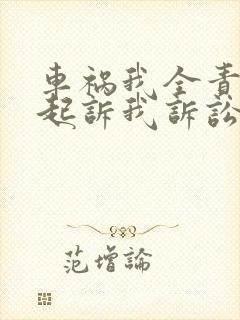 車禍我全責
起訴我訴訟
范增論